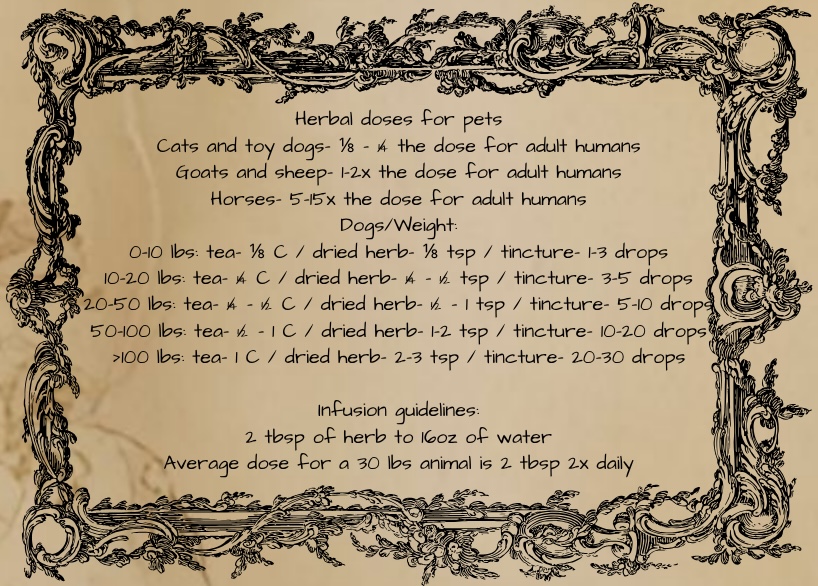 Herbal doses for pets
Cats and toy dogs- ⅛ - ¼ the dose for adult humans
Goats and sheep- 1-2x the dose for adult humans
Horses- 5-15x the dose for adult humans
Dogs/Weight:
0-10 lbs: tea- ⅛ C / dried herb- ⅛ tsp / tincture- 1-3 drops
10-20 lbs: tea- ¼ C / dried herb- ¼ - ½ tsp / tincture- 3-5 drops
20-50 lbs: tea- ¼ - ½ C / dried herb- ½ - 1 tsp / tincture- 5-10 drops
50-100 lbs: tea- ½ - 1 C / dried herb- 1-2 tsp / tincture- 10-20 drops
>100 lbs: tea- 1 C / dried herb- 2-3 tsp / tincture- 20-30 drops
Infusion guidelines:
2 tbsp of herb to 16oz of water
Average dose for a 30 lbs animal is 2 tbsp 2x daily